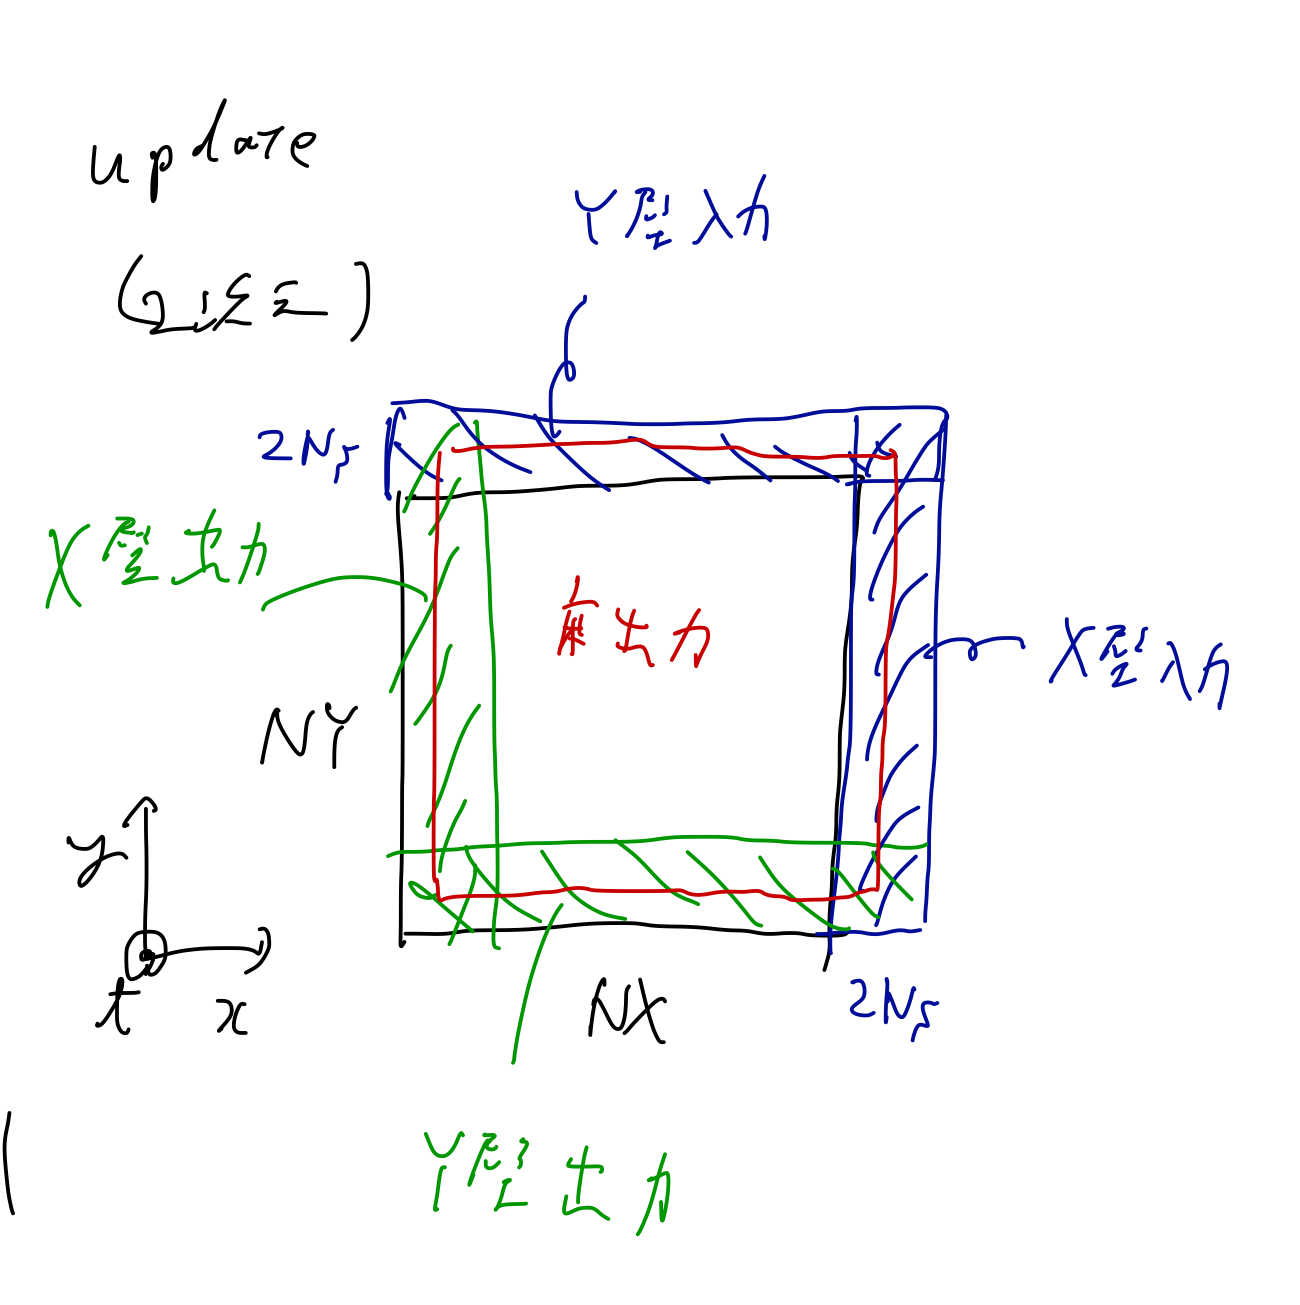 update
Y壁入力
2Ns
X壁出力
床出力
X壁入力
NY
y
t x
NX
2Ns
Y壁出力